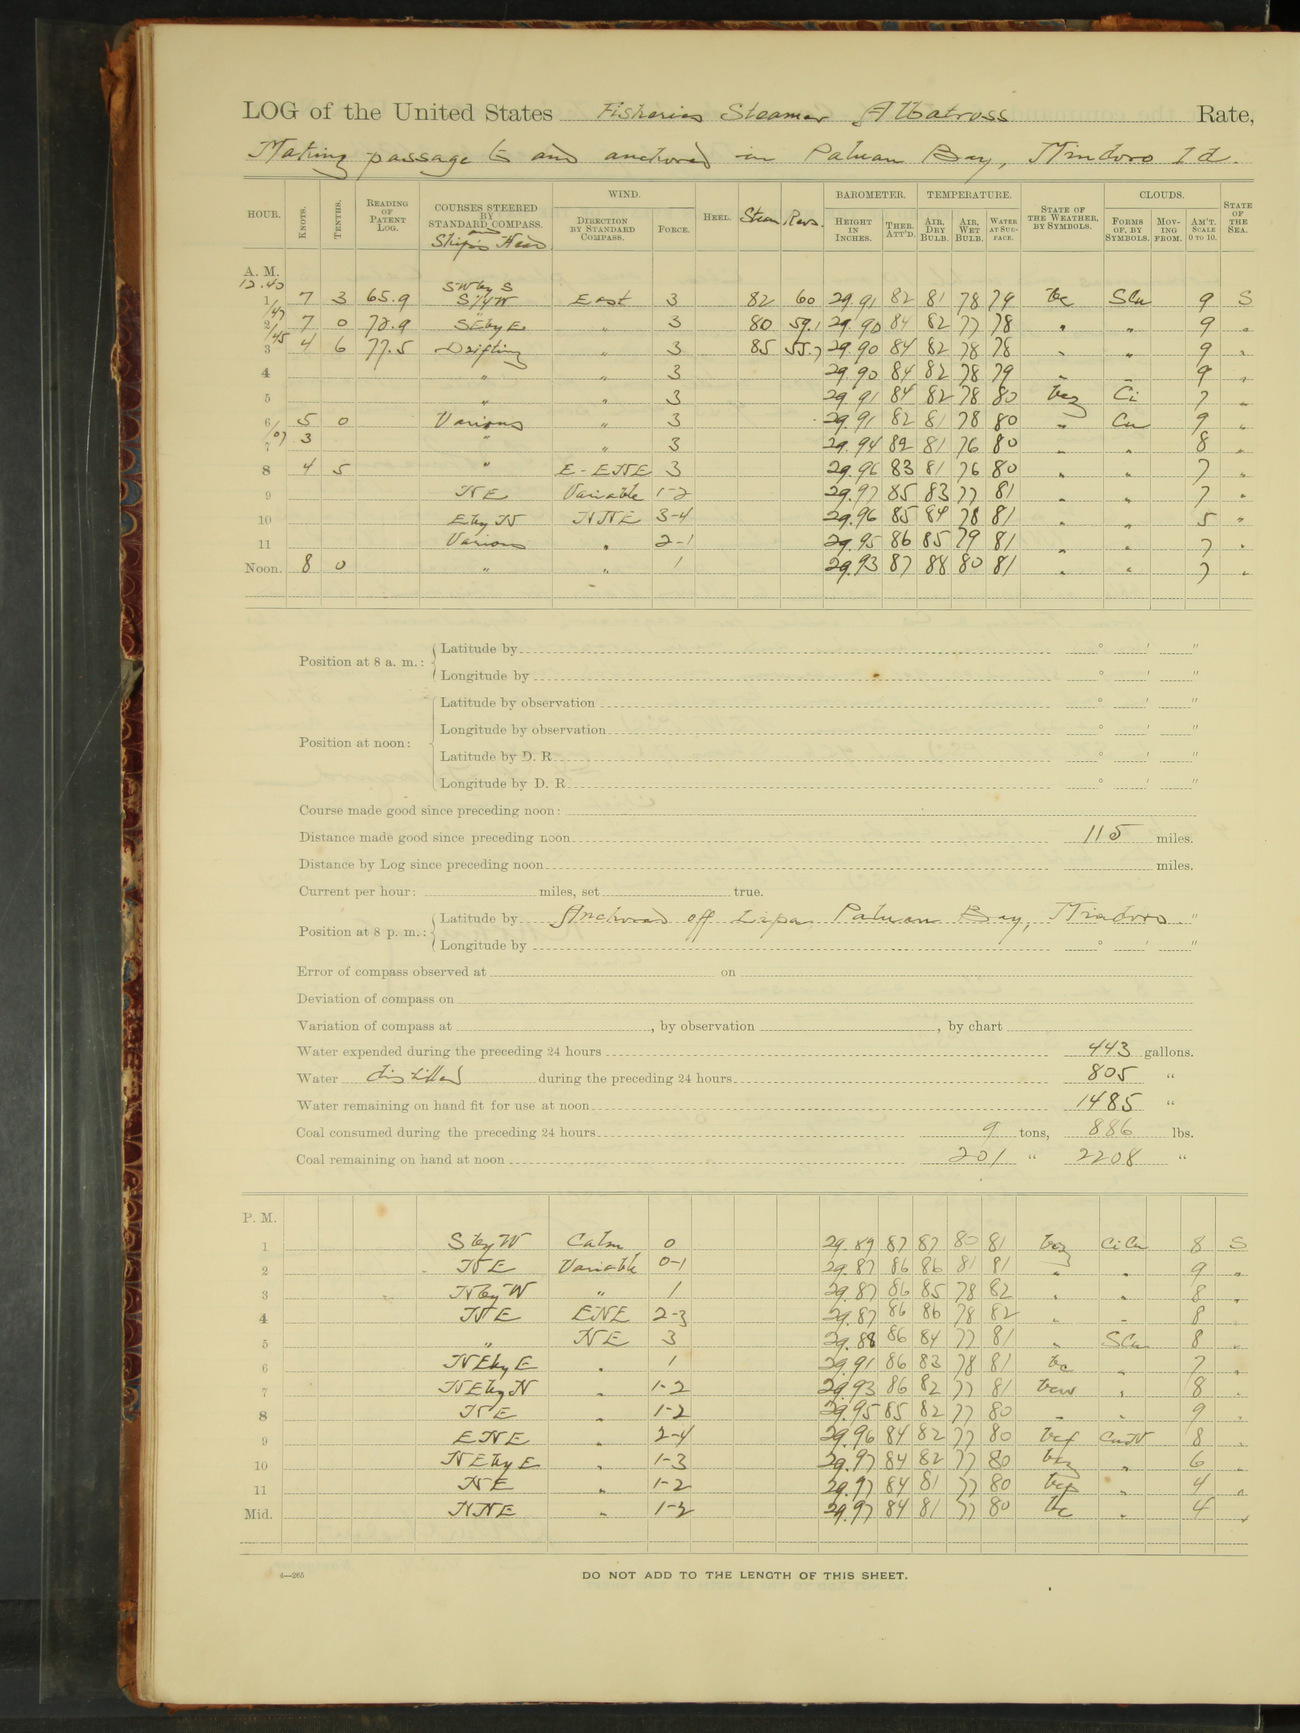 LOG of the United States Fisheries Steamer Albatross Rate,
Making passage to and anchored in Paluan Bay, Mindoro Id.
HOUR. KNOTS. TENTHS. READING OF PATENT LOG. COURSES STEERED BY STANDARD COMPASS. and Ship's Head WIND. DIRECTION BY STANDARD COMPASS. FORCE. HEEL. Steam Revs. BAROMETER. HEIGHT IN INCHES. THER. ATT'D. TEMPERATURE. AIR, DRY BULB. AIR, WET BULB. WATER AT SURFACE. STATE OF THE WEATHER, BY SYMBOLS. CLOUDS. FORMS OF, BY SYMBOLS. MOVING FROM. AM'T. SCALE 0 TO 10. STATE OF THE SEA.
A. M.
12.40 SW by S
1 7 3 65.9 S¼W East 3 82 60 29.91 82 81 78 79 bc SCu 9 S
/47
2 7 0 72.9 SE by E " 3 80 59.1 29.90 84 82 77 78 " " 9 "
/45
3 4 6 77.5 Drifting " 3 85 55.7 29.90 84 82 78 78 " " 9 "
4 " " 3 29.90 84 82 78 79 " " 9 "
5 " " 3 29.91 84 82 78 80 bcz Ci 7 "
6 5 0 Various " 3 29.91 82 81 78 80 " Cu 9 "
/07
7 3 " " 3 29.94 82 81 76 80 " " 8 "
8 4 5 " E-ENE 3 29.96 83 81 76 80 " " 7 "
9 NE Variable 1-2 29.97 85 83 77 81 " " 7 "
10 E by N NNE 3-4 29.96 85 84 78 81 " " 5 "
11 Various " 2-1 29.95 86 85 79 81 " " 7 "
Noon. 8 0 " " 1 29.93 87 88 80 81 " " 7 "
Position at 8 a. m.: Latitude by ° ' "
Longitude by ° ' "
Position at noon: Latitude by observation ° ' "
Longitude by observation ° ' "
Latitude by D. R. ° ' "
Longitude by D. R. ° ' "
Course made good since preceding noon:
Distance made good since preceding noon 115 miles.
Distance by Log since preceding noon miles.
Current per hour: miles, set true.
Position at 8 p. m.: Latitude by Anchored off Lipa Paluan Bay, Mindoro "
Longitude by ° ' "
Error of compass observed at on
Deviation of compass on
Variation of compass at , by observation , by chart
Water expended during the preceding 24 hours 443 gallons.
Water distilled during the preceding 24 hours 805 "
Water remaining on hand fit for use at noon 1485 "
Coal consumed during the preceding 24 hours 9 tons, 886 lbs.
Coal remaining on hand at noon 201 " 2208 "
P. M.
1 S by W Calm 0 29.89 87 87 80 81 bcz CiCu 8 S
2 NE Variable 0-1 29.87 86 86 81 81 " " 9 "
3 N by W " 1 29.87 86 85 78 82 " " 8 "
4 NE ENE 2-3 29.87 86 86 78 82 " " 8 "
5 " NE 3 29.88 86 84 77 81 " SCu 8 "
6 NE by E " 1 29.91 86 83 78 81 bc " 7 "
7 NE by N " 1-2 29.93 86 82 77 81 bcw " 8 "
8 NE " 1-2 29.95 85 82 77 80 " " 9 "
9 ENE " 2-4 29.96 84 82 77 80 bcf CuN 8 "
10 NE by E " 1-3 29.97 84 82 77 80 bcz " 6 "
11 NE " 1-2 29.97 84 81 77 80 " 4 "
Mid. NNE " 1-2 29.97 84 81 77 80 bc " 4 "
6—265
DO NOT ADD TO THE LENGTH OF THIS SHEET.